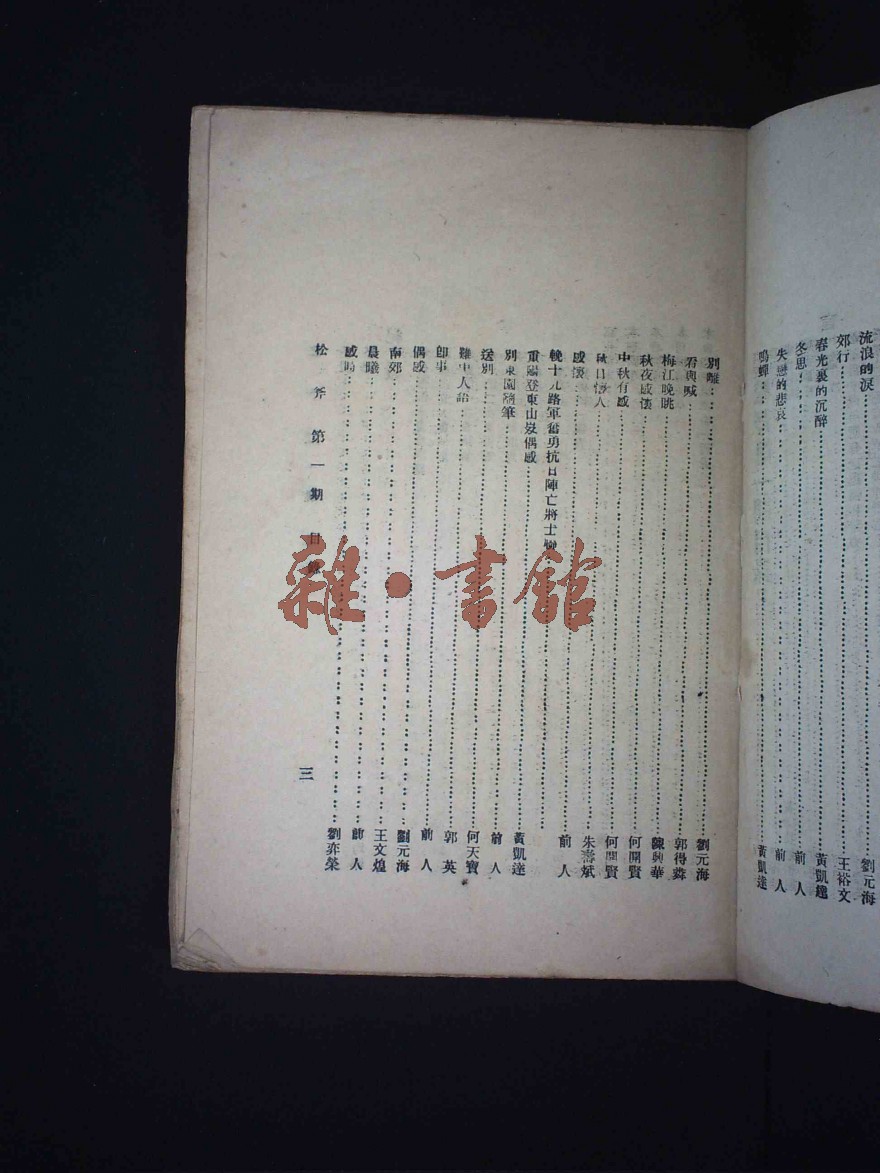 流浪的淚……劉元海
郊行……王裕文
春光裏的沉醉……黃凱
冬思……前人
失戀的悲哀……前人
鳴蟬……黃凱達
別離……劉元海
看與喊……郭得
梅江晚眺……陳興華
秋夜感懷……何開賢
中秋有感……何開賢
秋日懷人……朱壽斌
感懷……前人
輓十九路軍奮勇抗日陣亡將士
重陽登東山岌偶感……黃凱達
別東園隨筆……前人
送別……何天寶
難中人語……郭英
卽事……前人
偶感……劉元海
南郊……王文煌
晨曦……前人
感時……劉奕榮
松斧第一期目錄
三
雜·書館